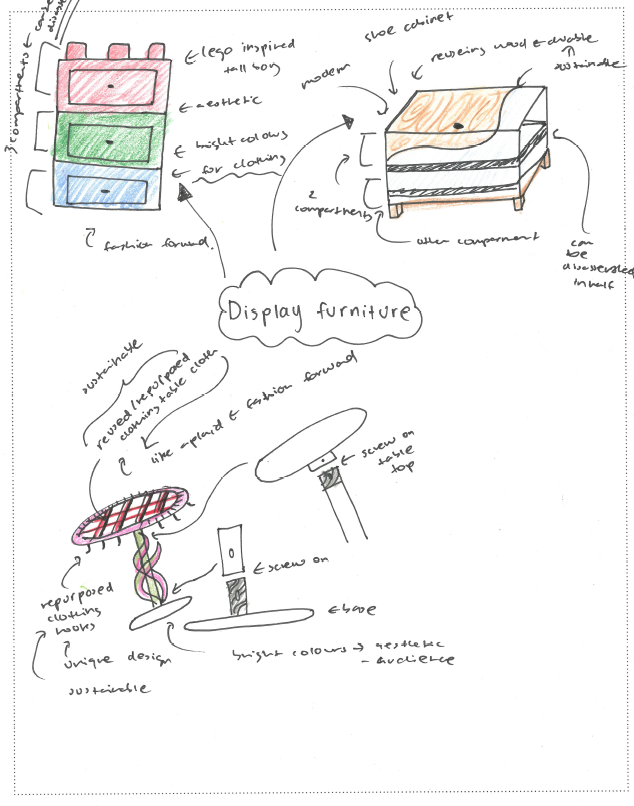 3 compartments
← lego inspired
tall boy
← aesthetic
← bright colours
← for clothing
fashion forward.
shoe cabinet
reusing wood → durable
sustainable
modern
2
compartments
other compartment
can
be
disassembled
in half
Display furniture
sustainable
reused/repurposed
clothing table cloth
like a plaid ← fashion forward
← screw on
table
top
← screw on
← base
repurposed
clothing
hooks
unique design
sustainable
bright colours → aesthetic
- audience